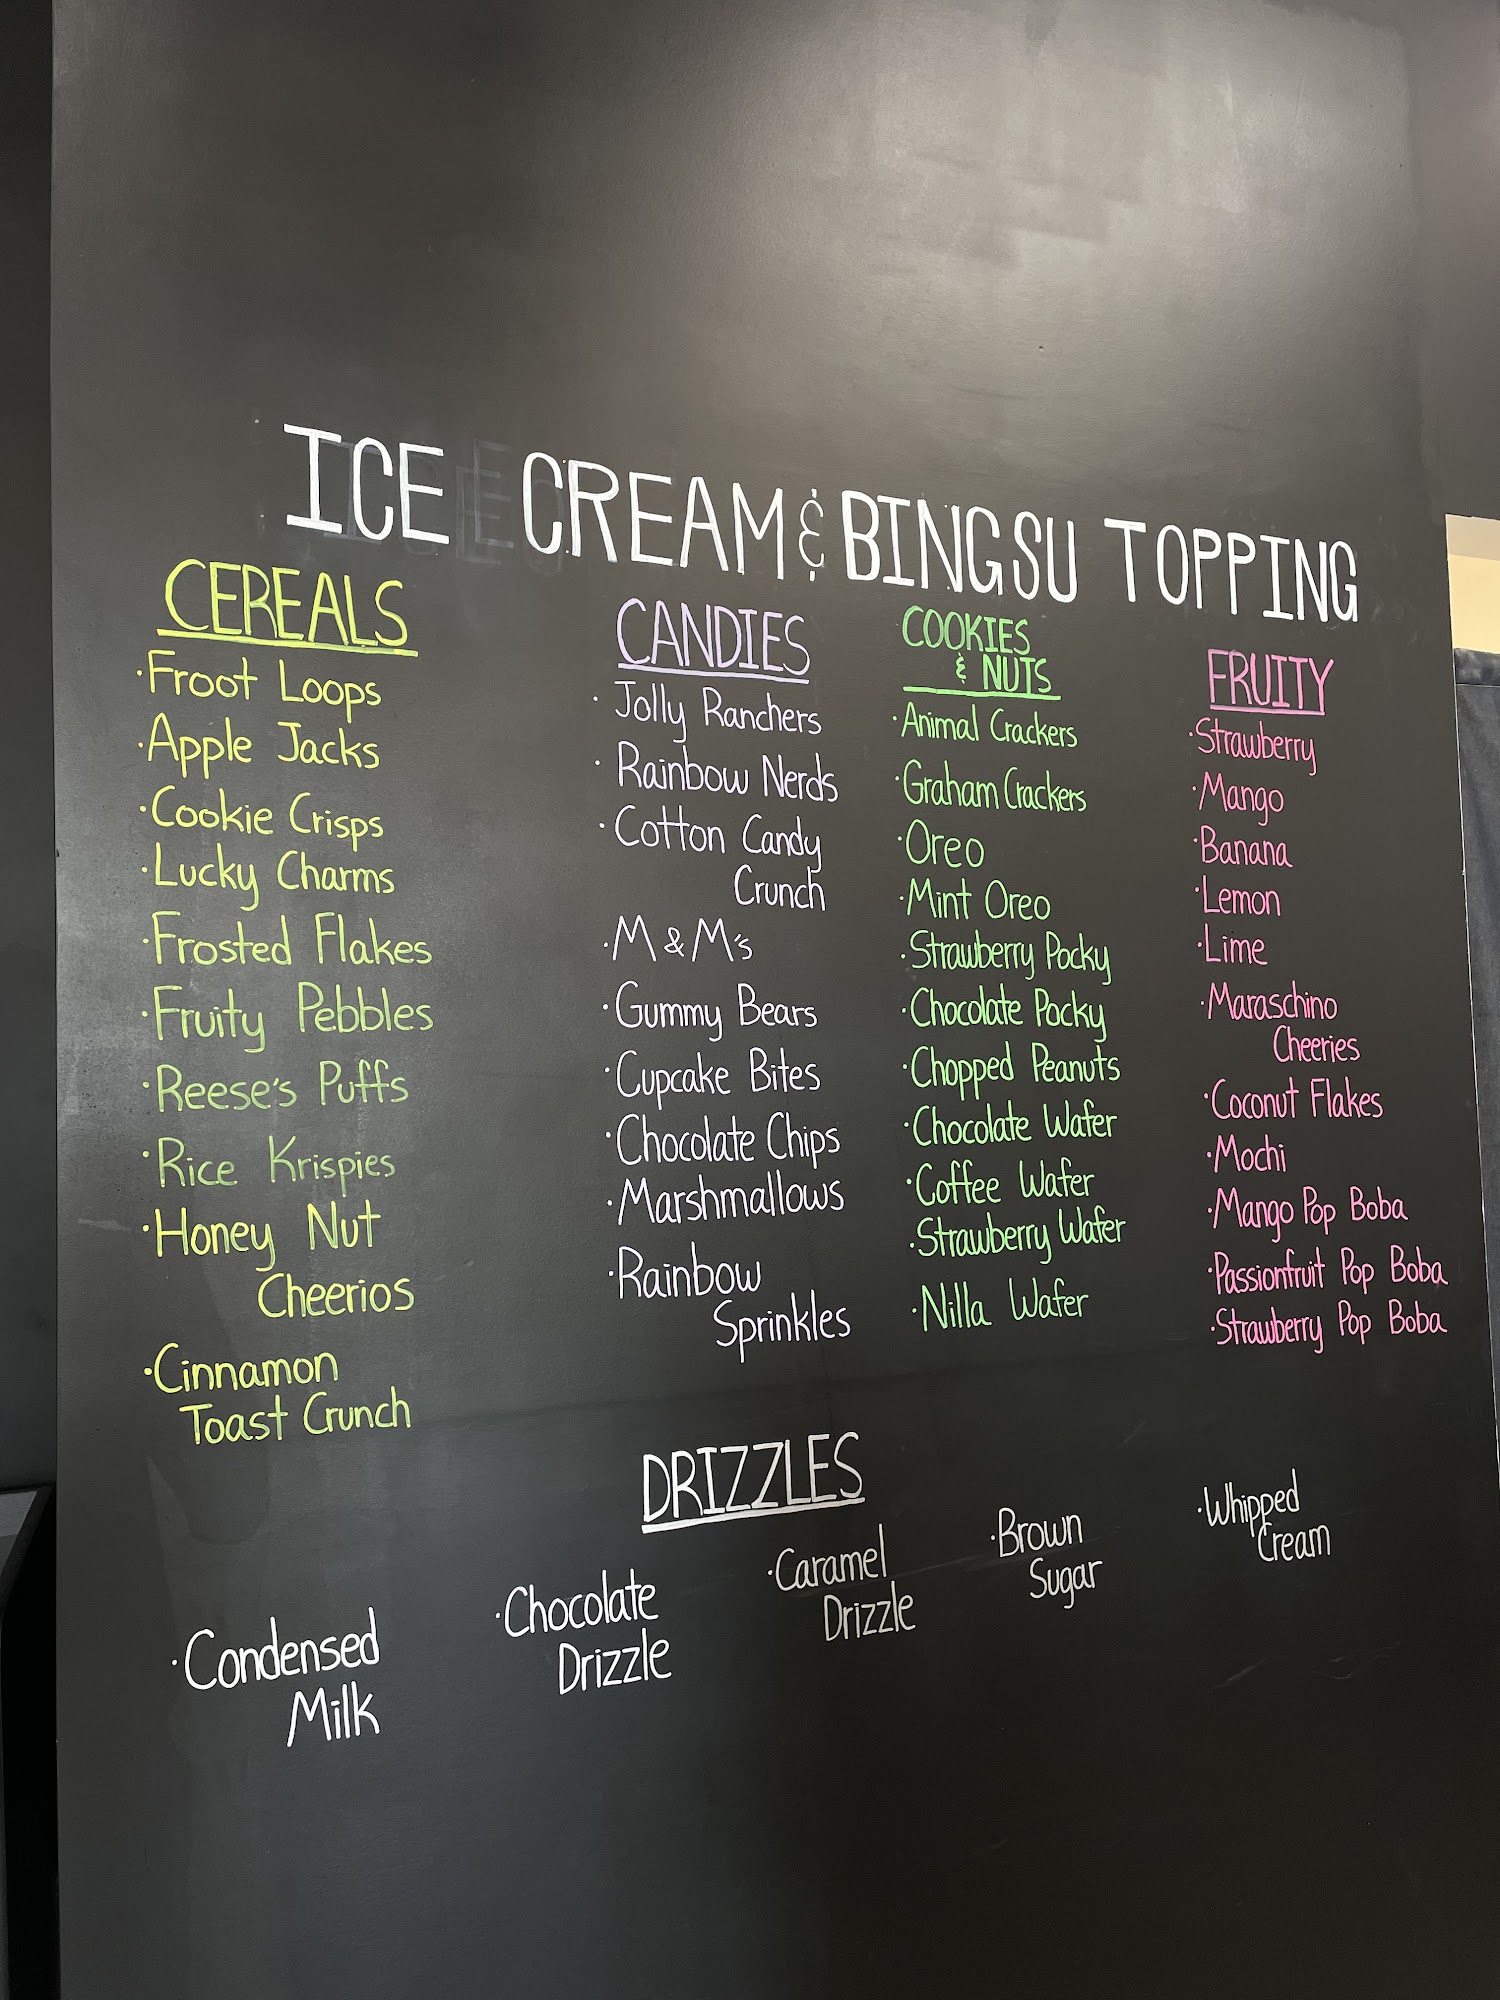 ICE CREAM & BINGSU TOPPING
CEREALS
·Froot Loops
·Apple Jacks
·Cookie Crisps
·Lucky Charms
·Frosted Flakes
·Fruity Pebbles
·Reese's Puffs
·Rice Krispies
·Honey Nut
Cheerios
·Cinnamon
Toast Crunch
CANDIES
·Jolly Ranchers
·Rainbow Nerds
·Cotton Candy
Crunch
·M & M's
·Gummy Bears
·Cupcake Bites
·Chocolate Chips
·Marshmallows
·Rainbow
Sprinkles
COOKIES
& NUTS
·Animal Crackers
·Graham Crackers
·Oreo
·Mint Oreo
·Strawberry Pocky
·Chocolate Pocky
·Chopped Peanuts
·Chocolate Wafer
·Coffee Wafer
·Strawberry Wafer
·Nilla Wafer
FRUITY
·Strawberry
·Mango
·Banana
·Lemon
·Lime
·Maraschino
Cheeries
·Coconut Flakes
·Mochi
·Mango Pop Boba
·Passionfruit Pop Boba
·Strawberry Pop Boba
DRIZZLES
·Condensed
Milk
·Chocolate
Drizzle
·Caramel
Drizzle
·Brown
Sugar
·Whipped
Cream